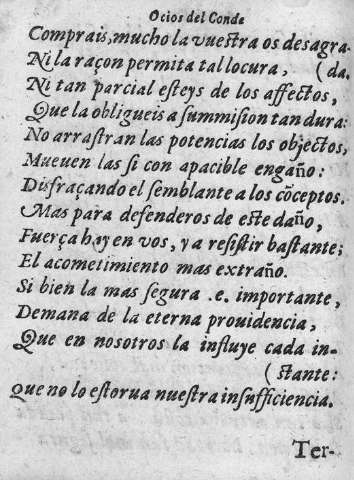 Ocios del Conde
Comprais, mucho la vuestra os desagra-
Ni la raçon permita tal locura, (da.
Ni tan parcial esteys de los affectos,
Que la obligueis a summision tan dura:
No arrastran las potencias los objectos,
Mueuen las si con apacible engaño:
Disfraçando el semblante a los cõceptos.
Mas para defenderos de este daño,
Fuerça hay en vos, y a resistir bastante;
El acometimiento mas extraño.
Si bien la mas segura .e. importante,
Demana de la eterna prouidencia,
Que en nosotros la influye cada in-
(stante:
Que no lo estorua nuestra insufficiencia.
Ter-